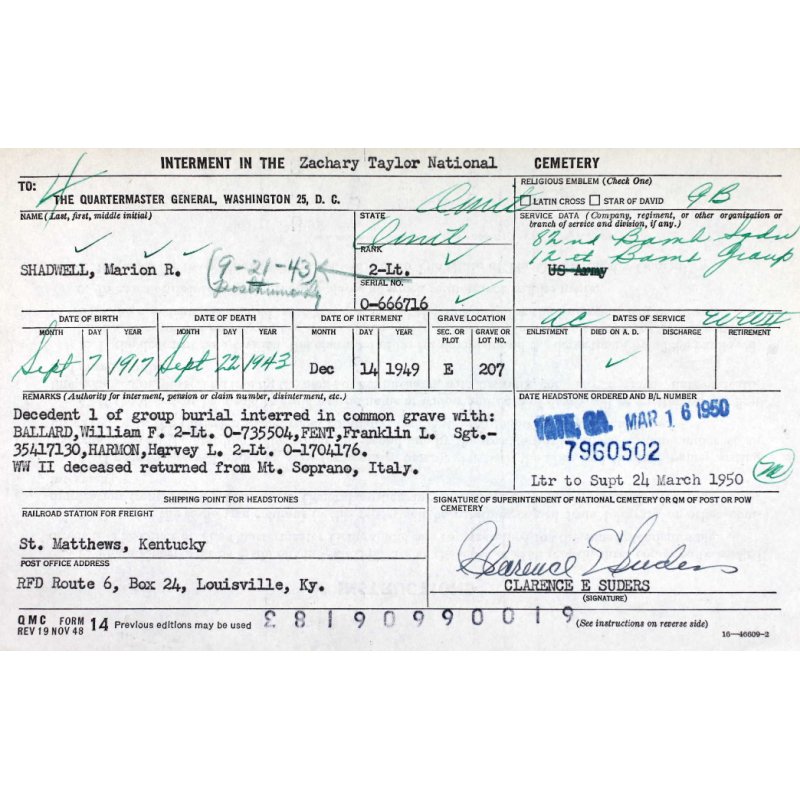 INTERMENT IN THE Zachary Taylor National CEMETERY
TO:
THE QUARTERMASTER GENERAL, WASHINGTON 25, D. C.
RELIGIOUS EMBLEM (Check One)
LATIN CROSS STAR OF DAVID
NAME (Last, first, middle initial)
SHADWELL, Marion R.
(9-21-43)
Posthumously
STATE
Omit
Omit
RANK
2-Lt.
SERIAL NO.
O-666716
SERVICE DATA (Company, regiment, or other organization or branch of service and division, if any.)
82nd Bomb Sqdn
12th Bomb Group
US Army
DATE OF BIRTH
MONTH DAY YEAR
Sept 7 1917
DATE OF DEATH
MONTH DAY YEAR
Sept 22 1943
DATE OF INTERMENT
MONTH DAY YEAR
Dec 14 1949
GRAVE LOCATION
SEC. OR PLOT GRAVE OR LOT NO.
E 207
AC DATES OF SERVICE WW II
ENLISTMENT DIED ON A. D. DISCHARGE RETIREMENT
REMARKS (Authority for interment, pension or claim number, disinterment, etc.)
Decedent 1 of group burial interred in common grave with:
BALLARD,William F. 2-Lt. O-735504,FENT,Franklin L. Sgt.-
35417130,HARMON,Harvey L. 2-Lt. O-1704176.
WW II deceased returned from Mt. Soprano, Italy.
DATE HEADSTONE ORDERED AND B/L NUMBER
TATE, GA. MAR 16 1950
7960502
Ltr to Supt 24 March 1950
SHIPPING POINT FOR HEADSTONES
RAILROAD STATION FOR FREIGHT
St. Matthews, Kentucky
POST OFFICE ADDRESS
RFD Route 6, Box 24, Louisville, Ky.
SIGNATURE OF SUPERINTENDENT OF NATIONAL CEMETERY OR QM OF POST OR POW CEMETERY
Clarence E Suders
CLARENCE E SUDERS
(SIGNATURE)
QMC FORM 14 Previous editions may be used
REV 19 NOV 48
(See instructions on reverse side)
16—46609-2